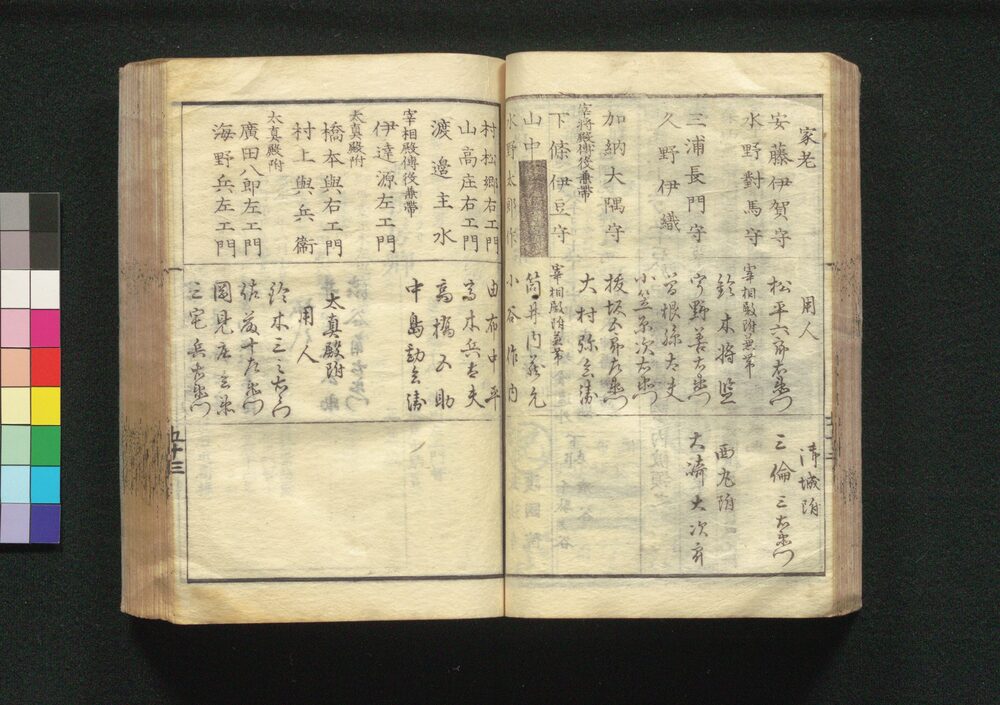 家老
安藤伊賀守
水野對馬守
三浦長門守
久野伊織
加納大隅守
宰将殿傳後兼帯
下條伊豆守
山中
水野太郎作
用人
松平六郎右衛門
宰相殿附兼帯
鈴木将監
宇野善右衛門
曽根孫太夫
小笠原次右衛門
坂五郎左衛門
大村弥兵衛
宰相殿附兼帯
筒井内蔵允
小谷作内
清城附
三倫三右衛門
西丸附
大濟大次

村松郷右エ門
山高庄右エ門
渡邊主水
宰相殿傳後兼帯
伊達源左エ門
太真殿附
橋本與右エ門
村上與兵衛
太真殿附
廣田八郎左エ門
海野兵左エ門
由布中平
高木兵太夫
高橋又助
中島勘兵衛
太真殿附
用人
鈴木三之右衛門
佐藤十左衛門
岡見店
三宅兵右衛門
五十三